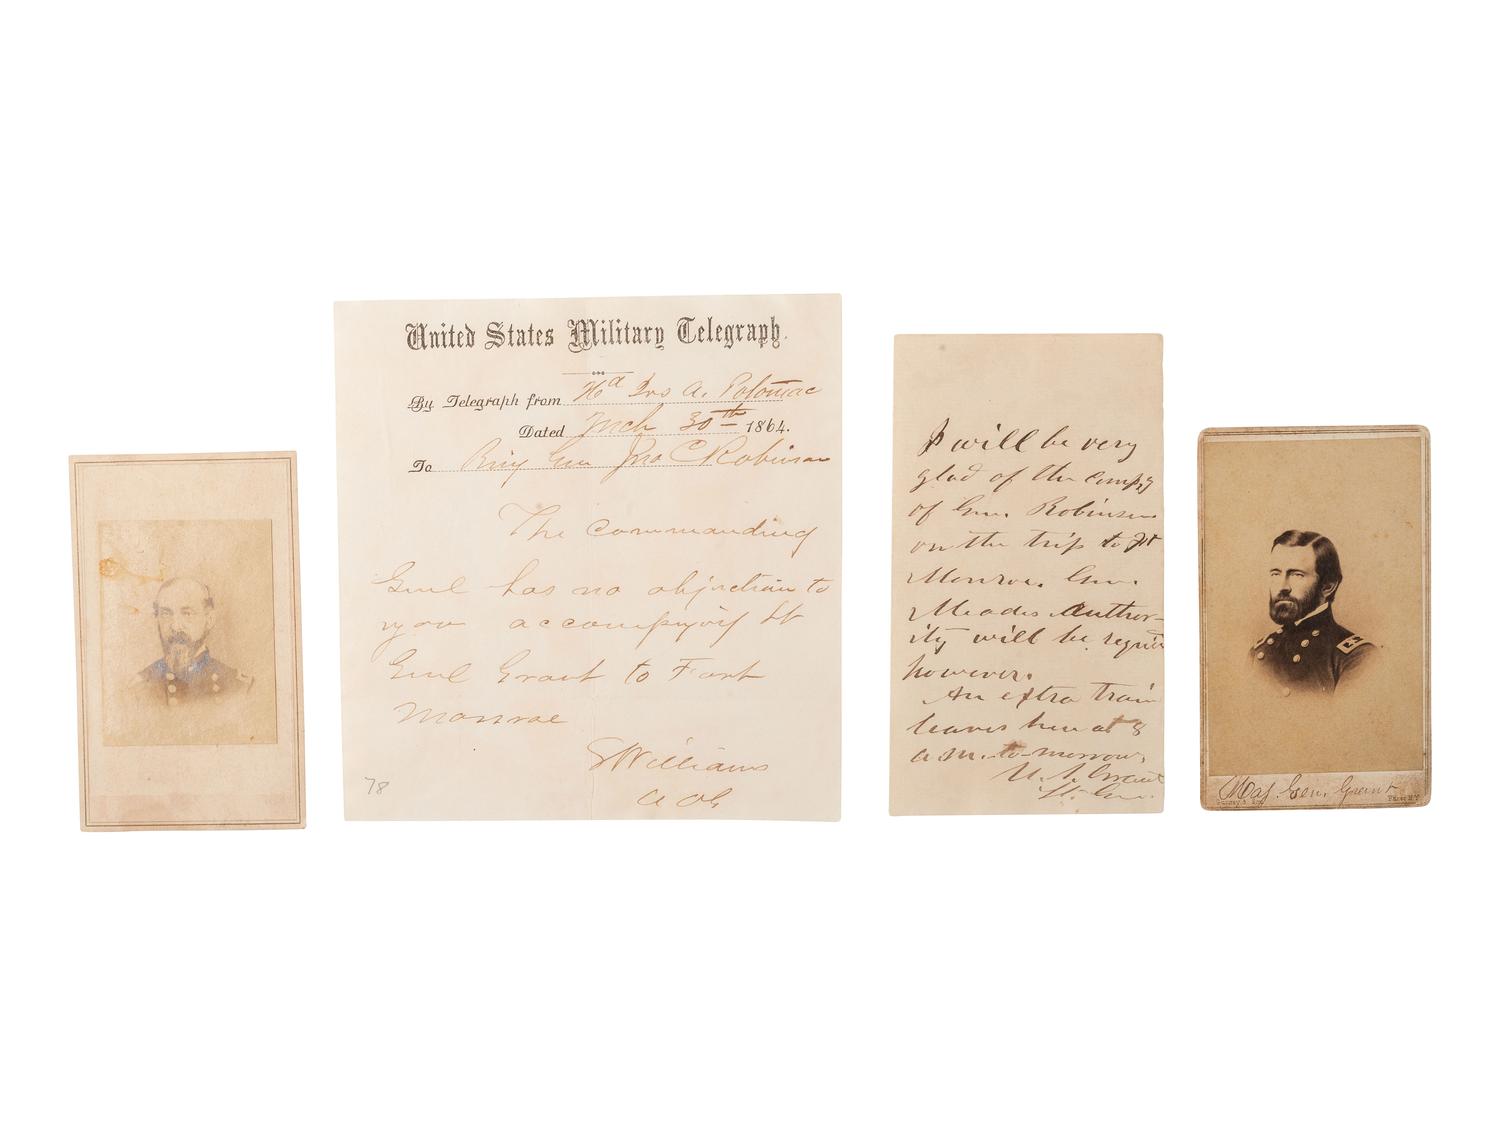 United States Military Telegraph.
By Telegraph from Hd Qrs A. Potomac
Dated Mch 30th 1864.
To Brig Gen Jno C Robinson
The Commanding
Genl has no objection to
you accompanying Lt
Genl Grant to Fort
Monroe
S Williams
A AG
78
I will be very
glad of the company
of Gen. Robinson
on the trip to Ft
Monroe. Gen.
Meades Author-
ity will be required
however.
An extra train
leaves here at 8
a.m. to-morrow.
U. S. Grant
Lt. Gen.
Maj. Gen. Grant